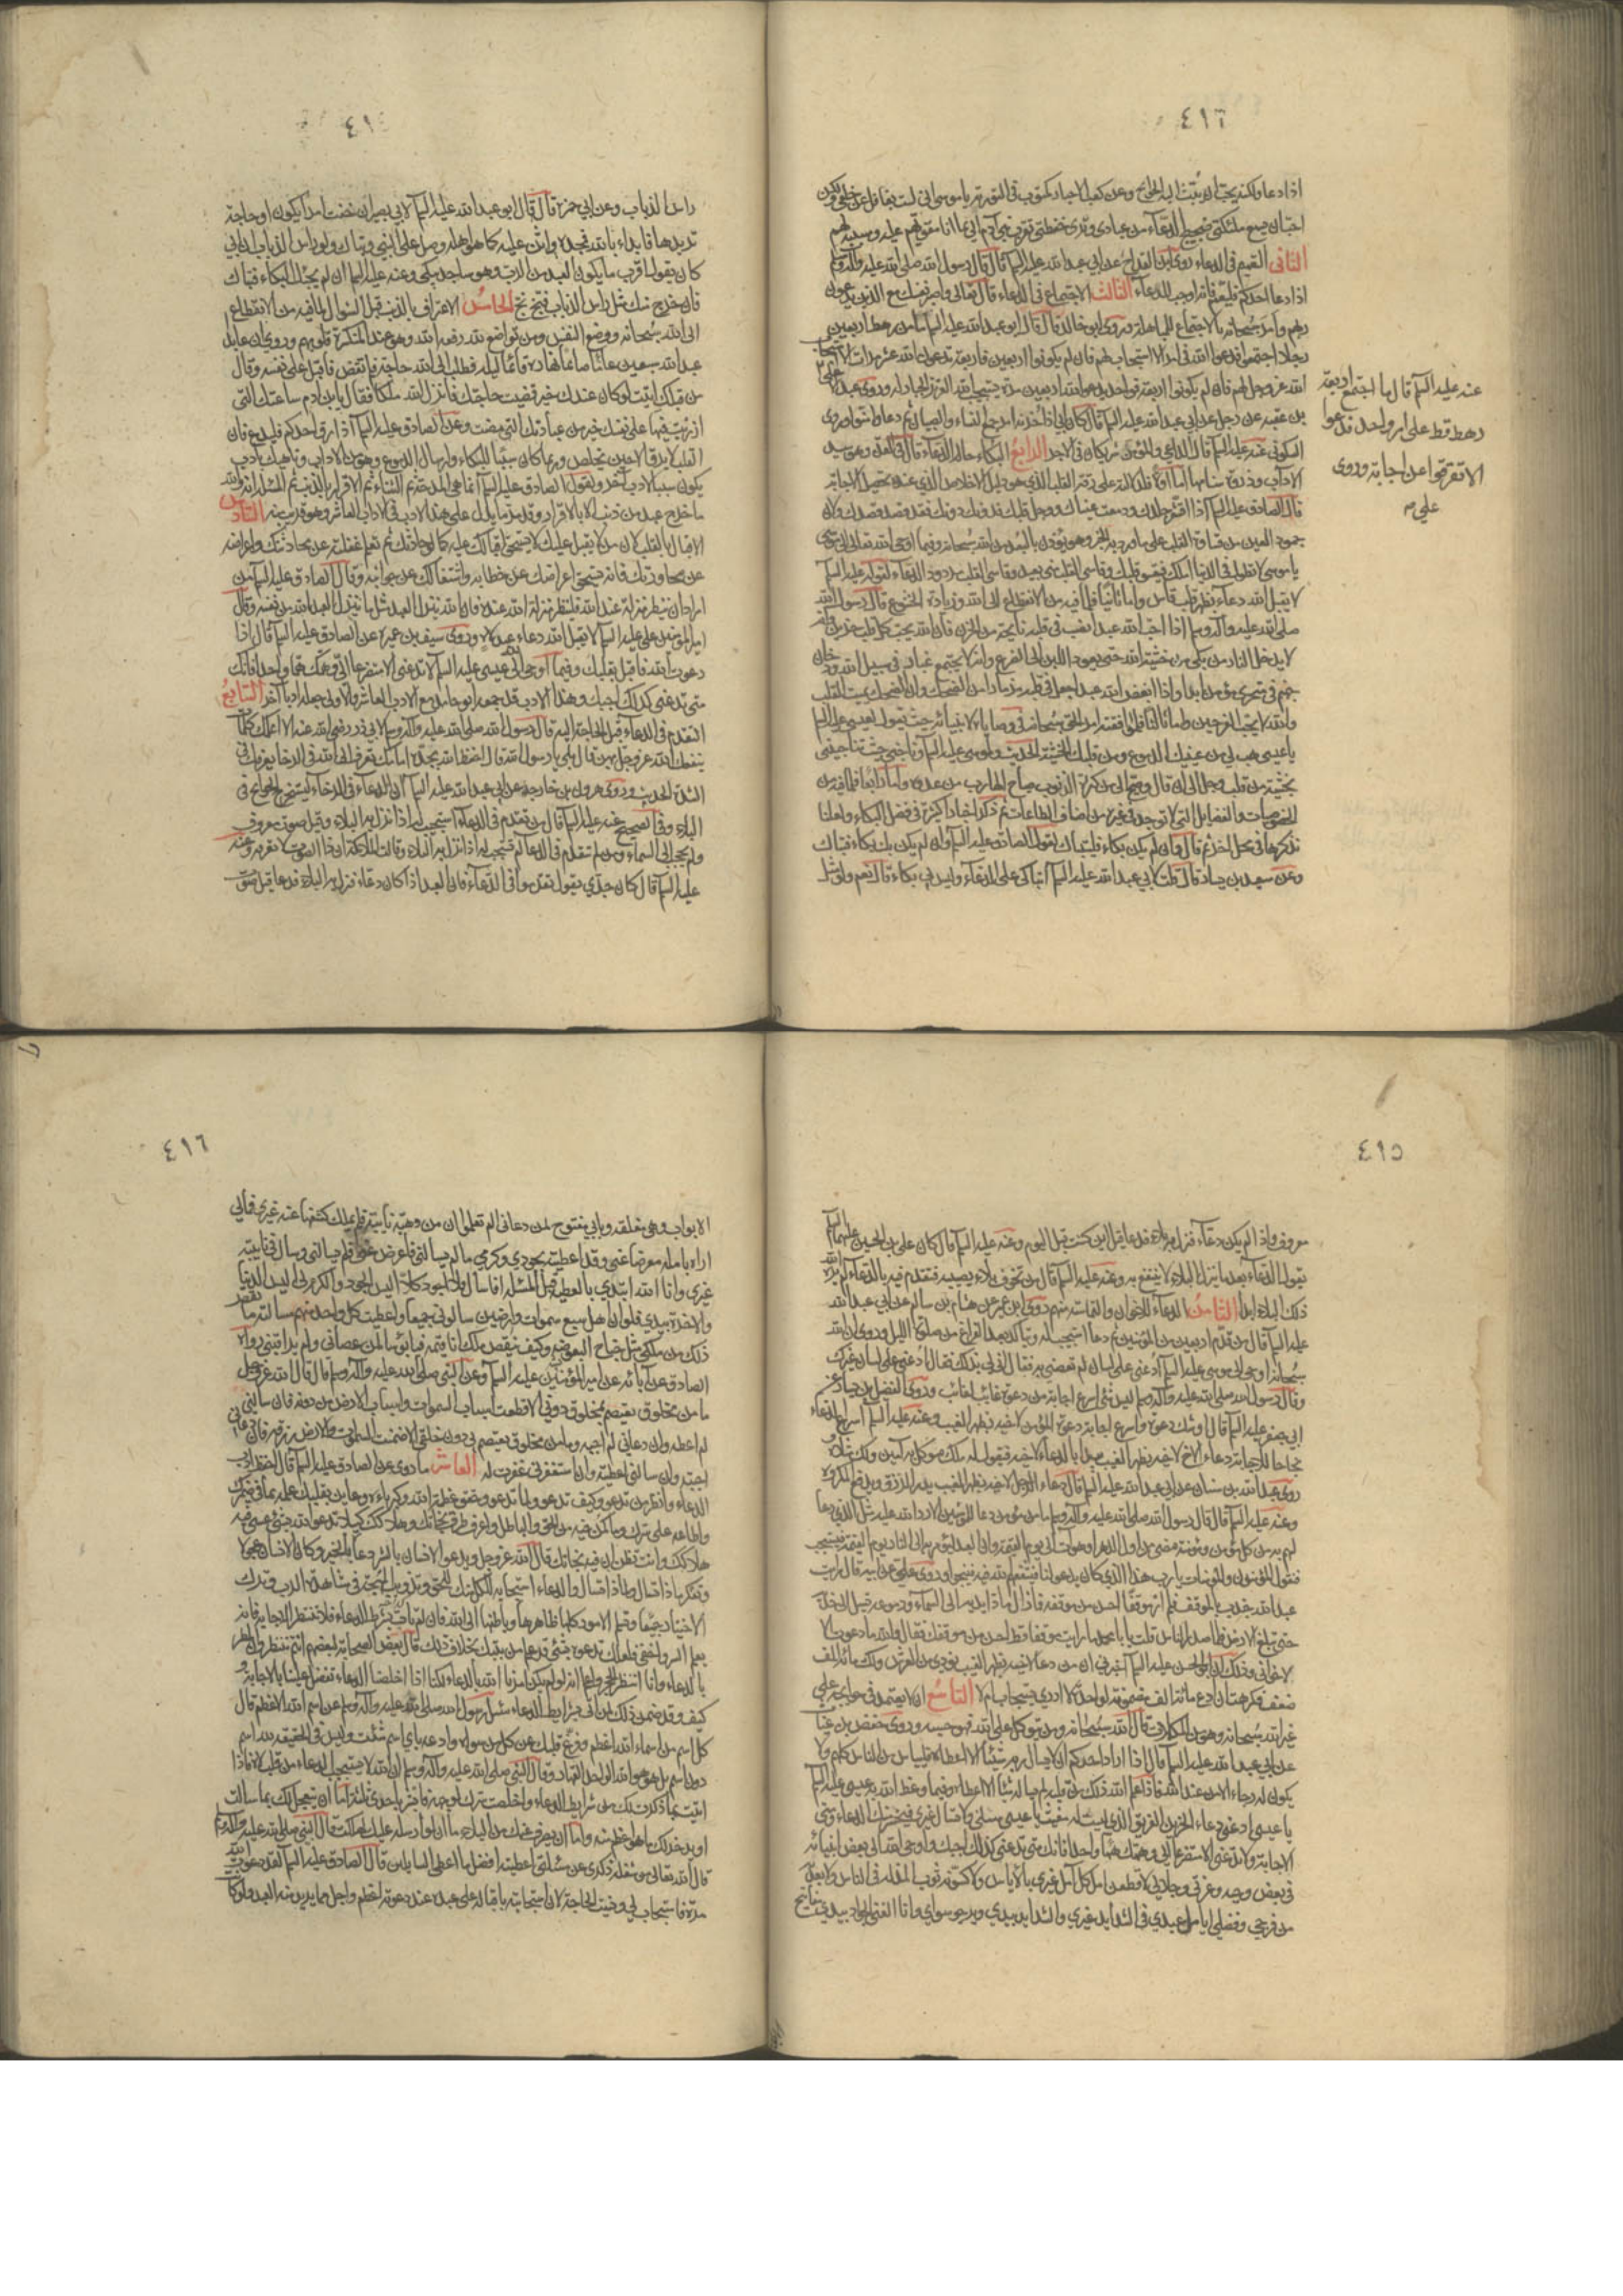 ٤١٦
اذا دعا ولكنه يحب ان يبث اليه الحوائج وعن كعب الاحبار مكتوب في التورية يا موسى اني لست بغافل عن خلقي ولكن
احب ان يسمع ملئكتي ضجيج الدعاء من عبادي وترى حفظتي تقرب بني آدم الي بما انا مقويهم عليه ومسببه لهم
الثاني التعميم في الدعاء روى ابن القداح عن ابي عبد الله عليه السلم قال قال رسول الله صلى الله عليه وآله وسلم
اذا دعا احدكم فليعمم فانه اوجب للدعاء الثالث الاجتماع في الدعاء قال تعالى واصبر نفسك مع الذين يدعون
ربهم وامر سبحانه بالاجتماع للمباهلة وروى ابو خالد قال قال ابو عبد الله عليه السلم ما من رهط اربعين
رجلا اجتمعوا فدعوا الله في امر الا استجاب لهم فان لم يكونوا اربعين فاربعة يدعون الله عشر مرات الا استجاب
الله عز وجل لهم فان لم يكونوا اربعة فواحد يدعو الله اربعين مرة يستجيب الله العزيز الجبار له وروى عبد الاعلى
عنه عليه السلم قال ما اجتمع اربعة
رهط قط على امر واحد فدعوا
الا تفرقوا عن اجابة وروى
علي
بن عقبه عن رجل عن ابي عبد الله عليه السلم قال كان ابي اذا حزنه امر جمع النساء والصبيان ثم دعا وامنوا وروى
السكوني عنه عليه السلم قال الداعي والمؤمن شريكان في الاجر الرابع البكاء حالة الدعاء
الآداب وذروة سنامها اما اولا فلدلالته على رقة القلب الذي هو دليل الاخلاص الذي عنده تحصل الاجابة
قال الصادق عليه السلم اذا اقشعر جلدك ودمعت عيناك ووجل قلبك فدونك دونك فقد قصد قصدك ولان
جمود العين من قساوة القلب على ما ورد به الخبر وهو يؤذن بالبعد من الله سبحانه وفيما اوحى الله تعالى الى موسى
يا موسى لا تطول في الدنيا املك فيقسو قلبك وقاسي القلب مني بعيد وقاسي القلب مردود الدعاء لقوله عليه السلم
لا يقبل الله دعاء بظهر قلب قاس واما ثانيا فلما فيه من الانقطاع الى الله وزيادة الخشوع قال رسول الله
صلى الله عليه وآله وسلم اذا احب الله عبدا نصب في قلبه نايحة من الحزن فان الله يحب كل قلب حزين وانه
لا يدخل النار من بكى من خشية الله حتى يعود اللبن الى الضرع وانه لا يجتمع غبار في سبيل الله ودخان
جهنم في منخري مؤمن ابدا واذا ابغض الله عبدا جعل في قلبه مزمارا من الضحك وان الضحك يميت القلب
والله لا يحب الفرحين واما ثالثا فلموافقته امر الحق سبحانه في وصاياه لانبيائه حيث يقول لعيسى عليه السلم
يا عيسى هب لي من عينيك الدموع ومن قلبك الخشية الحديث ولموسى عليه السلم وناجني حيث تناجيني
بخشية من قلب وجل الى ان قال وصح الي من كثرة الذنوب صياح الهارب من عدوه واما رابعا فلما فيه من
الخصوصيات والفضايل التي لا توجد في غيره من اصناف الطاعات ثم ذكر اخبارا كثيرة في فضل البكاء ولعلنا
نذكرها في محل اخر ثم قال وان لم يكن بكاء فليتباك لقول الصادق عليه السلم وان لم يكن بك بكاء فتباك
وعن سعيد بن يسار قال قلت لابي عبد الله عليه السلم اتباكى على الدعاء وليس لي بكاء قال نعم ولو مثل
٤١
راس الذباب وعن ابي حمزة قال قال ابو عبد الله عليه السلم لابي بصير ان خفت امرا يكون او حاجة
تريدها فابداء بالله فمجده واثن عليه كما هو اهله وصل على النبي وتباك ولو مثل راس الذباب ان ابي
كان يقول اقرب ما يكون العبد من الرب وهو ساجد يبكي وعنه عليه السلم ان لم يجئك البكاء فتباك
فان خرج منك مثل راس الذباب فبخ بخ الخامس الاعتراف بالذنب قبل السؤال لما فيه من الانقطاع
الى الله سبحانه ووضع النفس ومن تواضع لله رفعه الله وهو عند المنكسرة قلوبهم وروي ان عابدا
عبد الله سبعين عاما صائما نهاره قائما ليله فطلب الى الله حاجة فلم تقض فاقبل على نفسه وقال
من قبلك اتيت لو كان عندك خير قضيت حاجتك فانزل الله ملكا فقال يا بن ادم ساعتك التي
ازريت فيها على نفسك خير من عبادتك التي مضت وعن الصادق عليه السلم اذا رق احدكم فليدع فان
القلب لا يرق الا حين يخلص وربما كان سببا للبكاء وارسال الدموع وهو من الآداب وناهيك بادب
يكون سببا لادب آخر ولقول الصادق عليه السلم انما هي المدحة ثم الثناء ثم الاقرار بالذنب ثم المسئلة انه والله
ما خرج عبد من ذنب الا بالاقرار السادس
الاقبال بالقلب لان من لا يقبل عليك لا يستحق اقبالك عليه كما لو حادثك ثم تعلم غفلته عن محادثتك واعراضه
عن محاورتك فانه يستحق اعراضك عن خطابه واشتغالك عن جوابه وقال الصادق عليه السلم من
اراد ان ينظر منزلته عند الله فلينظر منزلة الله عنده فان الله ينزل العبد مثل ما ينزل العبد الله من نفسه وقال
امير المؤمنين علي عليه السلم لا يقبل الله دعاء قلب لاه وروى سيف بن عميرة عن الصادق عليه السلم قال اذا
دعوت الله فاقبل بقلبك وفيما اوحى الله الى عيسى عليه السلم لا تدعني الا متضرعا الي وهمك هما واحدا فانك
متى تدعني كذلك اجبك السابع
التقدم في الدعاء قبل الحاجة اليه قال رسول الله صلى الله عليه وآله وسلم لابي ذر رضي الله عنه الا اعلمك كلمات
ينفعك الله عز وجل بهن قال بلى يا رسول الله قال احفظ الله يحفظك احفظ الله تجده امامك تعرف الى الله في الرخاء يعرفك في
الشدة الحديث وروى هرون بن خارجه عن ابي عبد الله عليه السلم ان الدعاء في الرخاء يستخرج الحوايج في
البلاء وفي الصحيح عنه عليه السلم قال من تقدم في الدعاء استجيب له اذا نزل به البلاء وقيل صوت معروف
ولم يحجب عن السماء ومن لم يتقدم في الدعاء لم يستجب له اذا نزل به البلاء وقالت الملائكة ان ذا الصوت لا نعرفه وعنه
عليه السلم قال كان جدي يقول تقدموا في الدعاء فان العبد اذا كان دعاء فنزل به البلاء فدعا قيل صوت
٤١٥
معروف واذا لم يكن دعاء فنزل به بلاء فدعا قيل اين كنت قبل اليوم وعنه عليه السلم قال كان علي بن الحسين عليهما السلم
يقول الدعاء بعد ما ينزل البلاء لا ينتفع به وعنه عليه السلم قال من تخوف بلاء يصيبه فتقدم فيه بالدعاء لم يره الله
ذلك البلاء ابدا الثامن الدعاء للاخوان والتماسه منهم روى ابن ابي عمير عن هشام بن سالم عن ابي عبد الله
عليه السلم قال من قدم اربعين من المؤمنين ثم دعا استجيب له ويتاكد بعد الفراغ من صلوة الليل وروي ان الله
سبحانه اوحى الى موسى عليه السلم ادعني على لسان لم تعصني به فقال انى لي بذلك فقال ادعني على لسان غيرك
وقال رسول الله صلى الله عليه وآله وسلم ليس شئ اسرع اجابة من دعوة غائب لغائب وروى الفضل بن يسار عن
ابي جعفر عليه السلم قال اوشك دعوة واسرع اجابة دعوة المؤمن لاخيه بظهر الغيب وعنه عليه السلم اسرع الدعاء
نجاحا للاجابة دعاء الاخ لاخيه بظهر الغيب يبدأ بالدعاء لاخيه فيقول له ملك موكل به آمين ولك مثلاه و
روى عبد الله بن سنان عن ابي عبد الله عليه السلم قال دعاء الرجل لاخيه بظهر الغيب يدر الرزق ويدفع المكروه
وعنه عليه السلم قال قال رسول الله صلى الله عليه وآله وسلم ما من مؤمن دعا للمؤمنين الا رد الله عليه مثل الذي دعا
لهم به من كل مؤمن ومؤمنة مضى من اول الدهر او هو آت الى يوم القيمة وان العبد ليؤمر به الى النار يوم القيمة فيسحب
فتقول المؤمنون والمؤمنات يا رب هذا الذي كان يدعو لنا فشفعنا فيه فينجو وروى علي عن ابيه قال رايت
عبد الله بن جندب بالموقف فلم ار موقفا احسن من موقفه فما زال مادا يديه الى السماء ودموعه تسيل الى خده
حتى تبلغ الارض فلما صدر الناس قلت يا با محمد ما رايت موقفا قط احسن من موقفك فقال والله ما دعوت الا
لاخواني وذلك لان ابا الحسن عليه السلم اخبرني ان من دعا لاخيه بظهر الغيب نودي من العرش ولك مائة الف
ضعف فكرهت ان ادع مائة الف مضمونة لواحدة لا ادري تستجاب ام لا التاسع ان لا يعتمد في حوائجه على
غير الله سبحانه قال الله سبحانه ومن يتوكل على الله فهو حسبه وروى حفص بن غياث
عن ابي عبد الله عليه السلم قال اذا اراد احدكم ان لا يسال ربه شيئا الا اعطاه فلييأس من الناس كلهم ولا
يكون له رجاء الا من عند الله فاذا علم الله ذلك من قلبه لم يساله شيئا الا اعطاه وفيما وعظ الله به عيسى عليه السلم
يا عيسى ادعني دعاء الحزين الغريق الذي ليس له مغيث يا عيسى سلني ولا تسال غيري فيحسن منك الدعاء ومني
الاجابة ولا تدعني الا متضرعا الي وهمك هما واحدا فانك متى تدعني كذلك اجبك واوحى الله الى بعض انبيائه
في بعض وحيه وعزتي وجلالي لاقطعن امل كل آمل غيري بالاياس ولاكسونه ثوب المذلة في الناس ولابعدنه
من فرجي وفضلي ايأمل عبدي في الشدايد غيري والشدايد بيدي ويرجو سواي وانا الغني الجواد بيدي مفاتيح
٤١٦
الابواب وهي مغلقة وبابي مفتوح لمن دعاني الم تعلموا ان من دهته نايبة فلم يملك كشفها عنه غيري فما لي
اراه بامله معرضا عني وقد اعطيته بجودي وكرمي ما لم يسالني فاعرض عني ولم يسالني وسال في نايبته
غيري وانا الله ابتدي بالعطية قبل المسئلة افاسال فلا اجود كلا اليس الجود والكرم لي اليس الدنيا
والاخرة بيدي فلو ان اهل سبع سموات وارضين سالوني جميعا واعطيت كل واحد منهم مسالته ما نقص
ذلك من ملكي مثل جناح البعوضة وكيف ينقص ملك انا قيمه فيا بؤسا لمن عصاني ولم يراقبني رواه
الصادق عن آبائه عن امير المؤمنين عليه السلم وعن النبي صلى الله عليه وآله وسلم قال قال الله عز وجل
ما من مخلوق يعتصم بمخلوق دوني الا قطعت اسباب السموات واسباب الارض من دونه فان سالني
لم اعطه وان دعاني لم اجبه وما من مخلوق يعتصم بي دون خلقي الا ضمنت السموات والارض رزقه فان دعاني
اجبته وان سالني اعطيته وان استغفرني غفرت له العاشر ما روي عن الصادق عليه السلم قال احفظ ادب
الدعاء وانظر من تدعو وكيف تدعو ولماذا تدعو وحقق عظمة الله وكبرياءه وعاين بقلبك علمه بما في ضميرك
واطلاعه على سرك وما يكن فيه من الحق والباطل واعرف طرق نجاتك وهلاكك كيلا تدعو الله بشئ عسى فيه
هلاكك وانت تظن ان فيه نجاتك قال الله عز وجل ويدعو الانسان بالشر دعاءه بالخير وكان الانسان عجولا
وتفكر ماذا تسال ولماذا تسال والدعاء استجابة الكل منك للحق وتذويب المهجة في مشاهدة الرب وترك
الاختيار جميعا وتسليم الامور كلها ظاهرها وباطنها الى الله فان لم تات بشرط الدعاء فلا تنتظر الاجابة فانه
يعلم السر واخفى فلعلك تدعوه بشئ قد علم من نيتك بخلاف ذلك قال بعض الصحابة لبعضهم انتم تنتظرون المطر
بالدعاء وانا انتظر الحجر واعلم انه لو لم يكن امرنا الله بالدعاء لكنا اذا اخلصنا الدعاء تفضل علينا بالاجابة
فكيف وقد ضمن ذلك لمن اتى بشرايط الدعاء سئل رسول الله صلى الله عليه وآله وسلم عن اسم الله الاعظم قال
كل اسم من اسماء الله اعظم وفرغ قلبك عن كل من سواه وادعه باي اسم شئت وليس في الحقيقة لله اسم
دون اسم بل هو هو الله الواحد القهار وقال النبي صلى الله عليه وآله وسلم ان الله لا يستجيب الدعاء من قلب لاه فاذا
اتيت بما ذكرت لك من شرايط الدعاء واخلصت سرك لوجهه فابشر باحدى ثلث اما ان يعجل لك بما سالت
او يدخر لك ما هو اعظم منه واما ان يصرف عنك من البلاء ما ان لو ارسله عليك لهلكت قال النبي صلى الله عليه وآله وسلم
قال الله تعالى من شغله ذكري عن مسئلتي اعطيته افضل ما اعطي السايلين قال الصادق عليه السلم لقد دعوت الله
مرة فاستجاب لي ونسيت الحاجة لان استجابته باقباله على عبده عند دعوته اعظم واجل مما يريد منه العبد ولو كانت